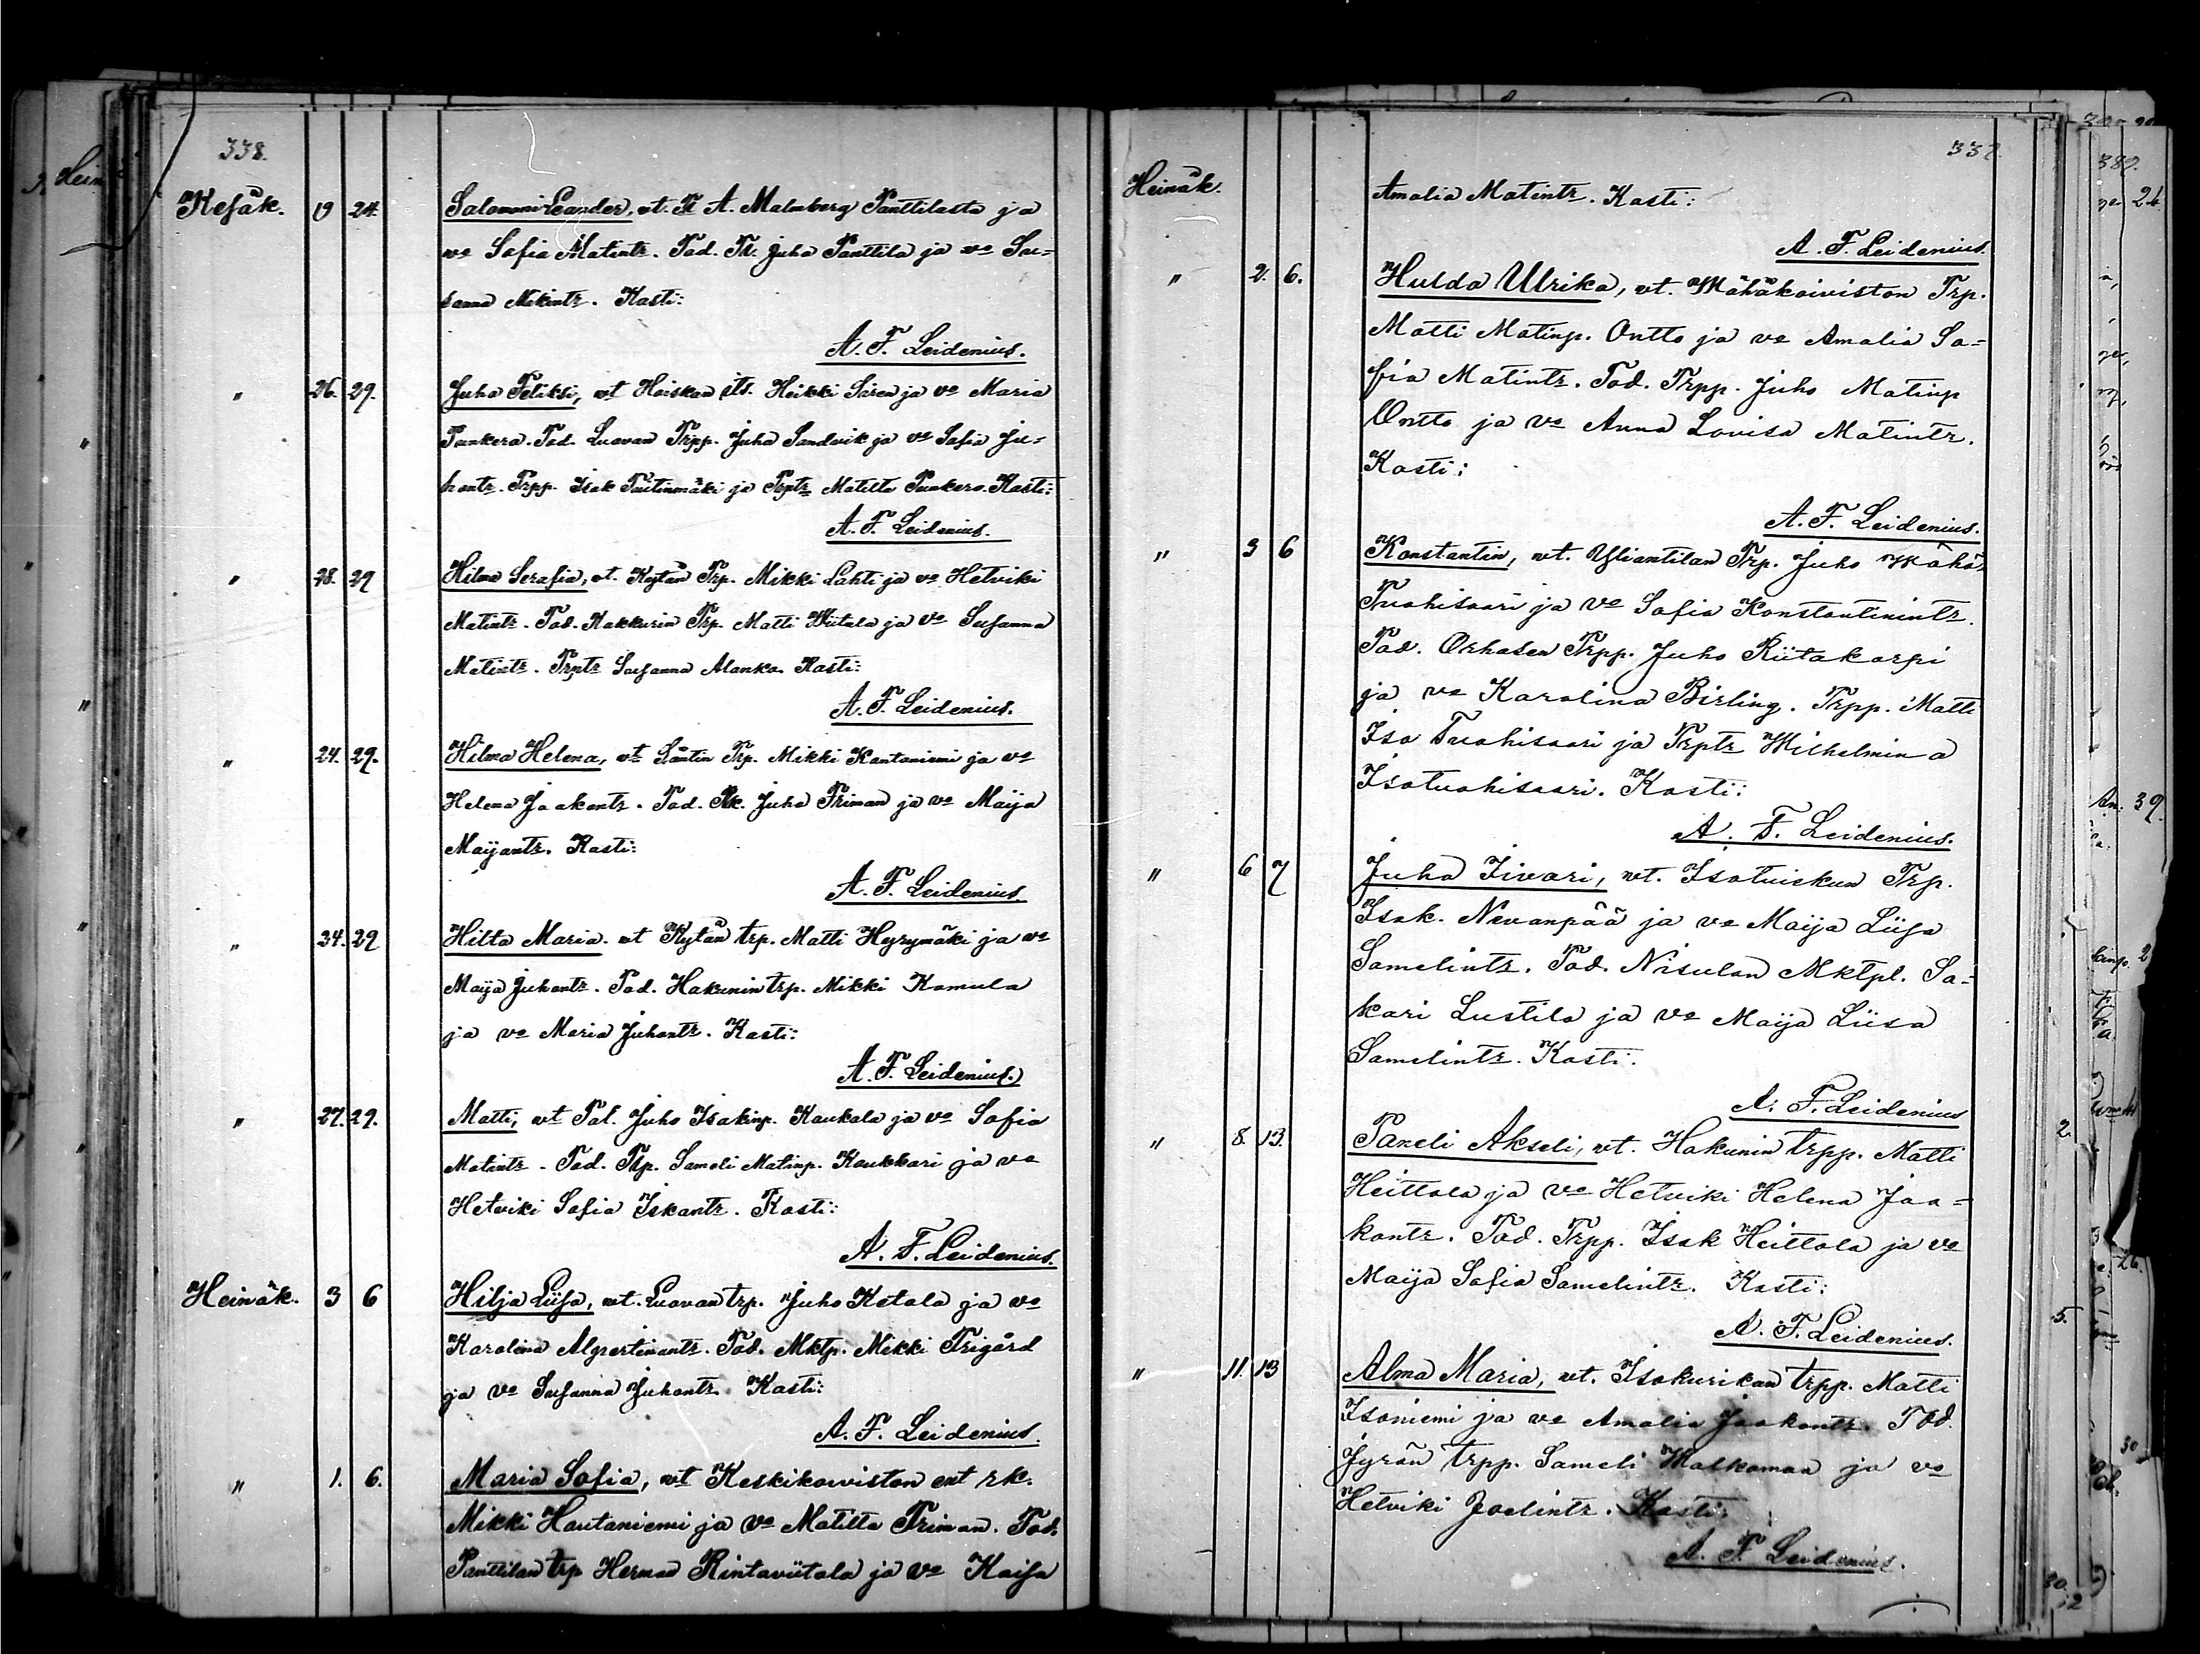 338.
Kesäk. 19 24. Salomoni Leander, vt. A. Malmberg Panttilasta ja
vo Sofia Matintr. Tod. Tr. Juha Panttila ja vo Su-
sanna Mikintr. Kasti:
A. F. Leidenius.
" 26. 29. Juha Feliksi, vt Hoiskan its. Heikki Saren ja vo Maria
Punkera. Tod. Luovan Trpp. Juha Sandvik ja vo Sofia Ju-
hontr. Trpp. Isak Tuitinmäki ja Trptr Matilta Punkero. Kasti:
A. F. Leidenius.
" 28. 29 Hilma Serafia, vt. Kytän Trp. Mikki Lahti ja vo Hetviki
Matintr. Tod. Kakkurin Trp. Matti Wiitala ja vo Susanna
Matintr. Trptr Susanna Alanko. Kasti:
A. F. Leidenius.
" 24. 29. Hilma Helena, vt Säntin Trp. Mikki Kantoniemi ja vo
Helena Jaakontr. Tod. Rk. Juha Friman ja vo Maija
Maijantr. Kasti:
A. F. Leidenius.
" 24. 29 Hilta Maria. vt Kytän trp. Matti Hyrymäki ja vo
Maija Juhontr. Tod. Hakunin trp. Mikki Komula
ja vo Maria Juhontr. Kasti:
A. F. Leidenius.
" 27. 29. Matti, vt Tal. Juho Isakinp. Kaukala ja vo Sofia
Matintr. Tod. Trp. Sameli Matinp. Koukkari ja vo
Hetviki Sofia Iskantr. Kasti:
A. F. Leidenius.
Heinäk. 3 6 Hilja Liisa, vt. Luovan trp. Juho Ketola ja vo
Karolina Algertinantr. Tod. Mktp. Mikki Frigård
ja vo Susanna Juhontr. Kasti:
A. F. Leidenius.
" 1. 6. Maria Sofia, vt Keskikoiviston ent rk.
Mikki Hautaniemi ja vo Matilta Friman. Tod.
Panttilan trp Herman Rintaviitala ja vo Kaisa
337.
Heinäk. Amalia Matintr. Kasti:
A. F. Leidenius.
" 2. 6. Hulda Ulrika, vt. Wähäkoiviston Trp.
Matti Matinp. Ontto ja vo Amalia So-
fia Matintr. Tod. Trpp. Juho Matinp
Ontto ja vo Anna Lovisa Matintr.
Kasti:
A. F. Leidenius.
" 3 6 Konstantin, vt. Yliantilan Trp. Juho Wähä-
Tuohisaari ja vo Sofia Konstantinintr.
Tod. Orhasen Trpp. Juho Riitakorpi
ja vo Karolina Birling. Trpp. Matti
Iso Tuohisaari ja Trptr Wilhelmina
Isotuohisaari. Kasti:
A. F. Leidenius.
" 6 7 Juha Iivari, vt. Isotuiskun Trp.
Isak. Nevanpää ja vo Maija Liisa
Samelintr. Tod. Nisulan Mktpl. Sa-
kari Lustila ja vo Maija Liisa
Samelintr. Kasti:
A. F. Leidenius
" 8. 13. Taneli Akseli, vt. Hakunin trpp. Matti
Heittola ja vo Hetviki Helena Jaa-
kontr. Tod. Trpp. Isak Heittola ja vo
Maija Sofia Samelintr. Kasti:
A. F. Leidenius.
" 11. 13 Alma Maria, vt. Isokurikan trpp. Matti
Isoniemi ja vo Amalia Jaakontr. Tod.
Jyrän trpp. Sameli Malkamaa ja vo
Hetviki Joelintr. Kasti:
A. F. Leidenius.